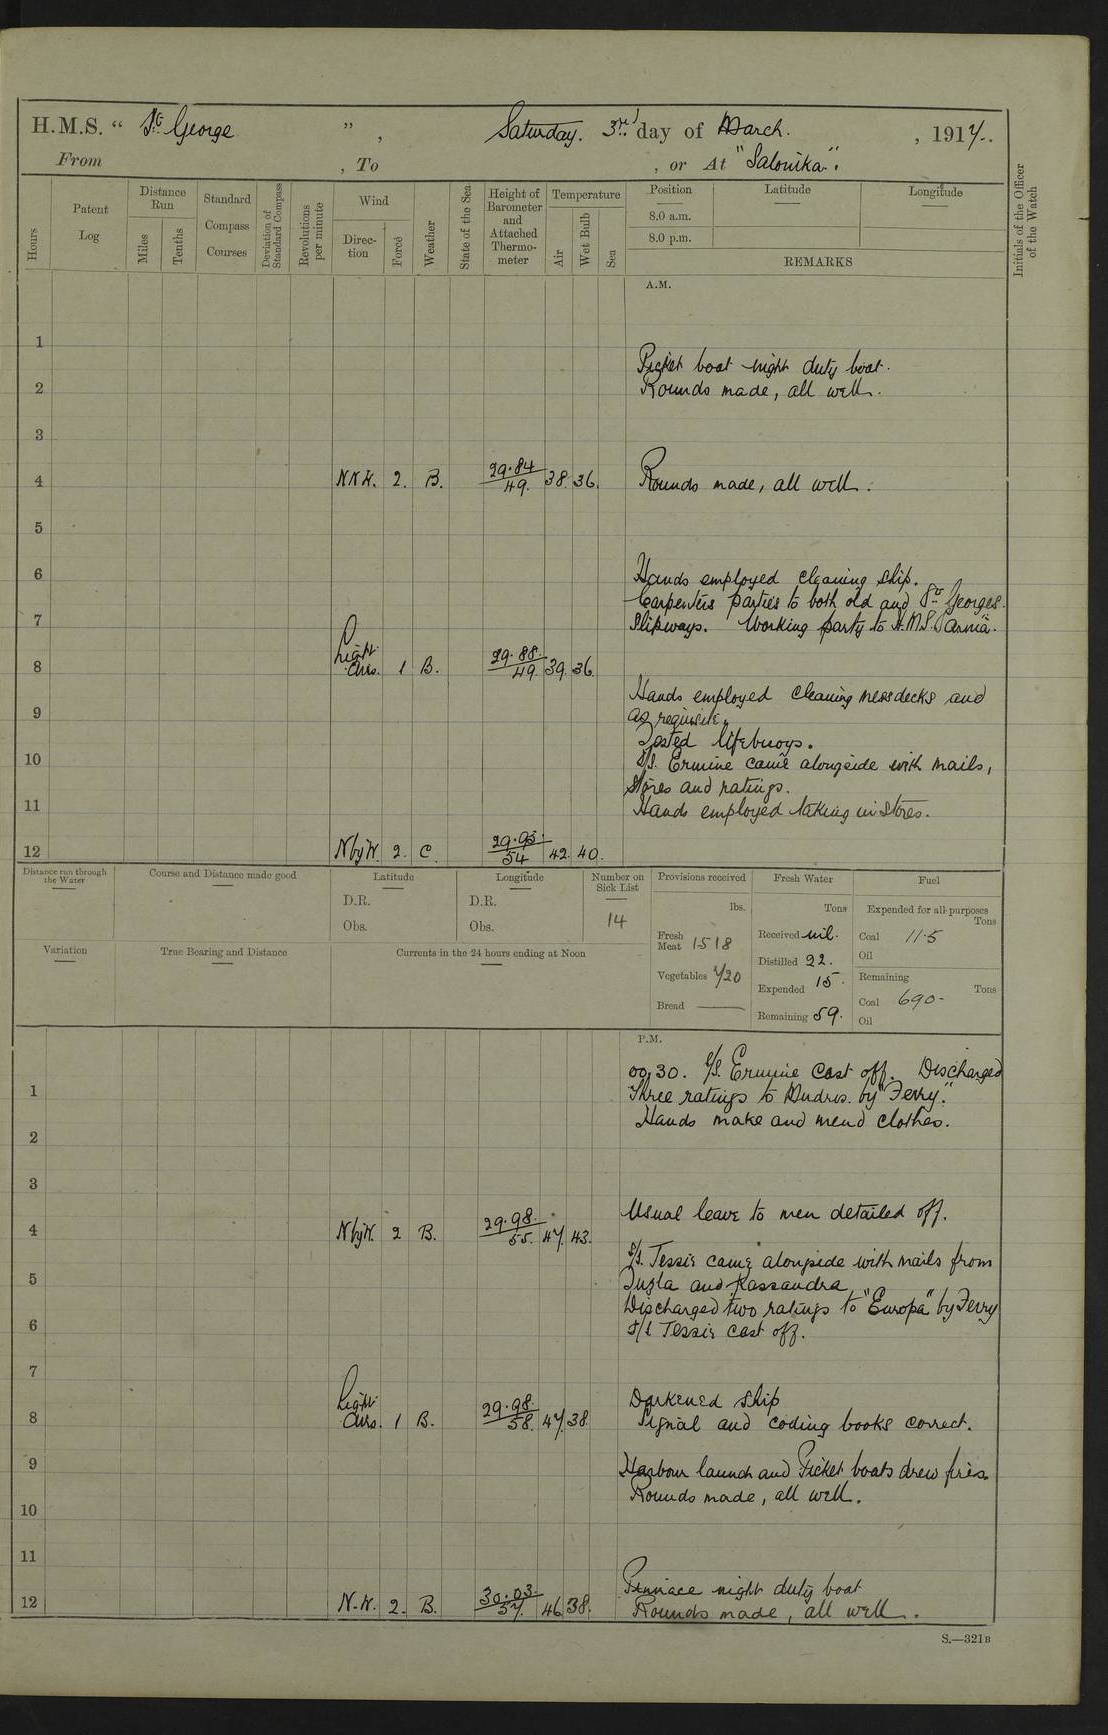 H.M.S. “ St. George ” , Saturday. 3rd day of March. , 1917.
From , To , or At "Salonika".
Hours
Patent Log
Distance Run
Miles
Tenths
Standard Compass Courses
Deviation of Standard Compass
Revolutions per minute
Wind
Direction
Force
Weather
State of the Sea
Height of Barometer and Attached Thermometer
Temperature
Air
Wet Bulb
Sea
Position Latitude Longitude
8.0 a.m.
8.0 p.m.
REMARKS
Initials of the Officer of the Watch
A.M.
1
Picket boat night duty boat.
2 Rounds made, all well.
3
4 NNW. 2. B. 29.84/49. 38. 36. Rounds made, all well.
5
6 Hands employed cleaning ship.
Carpenters parties to both old and St. Georges
7 Slipways. Working party to H.M.S.
8 Light Airs. 1 B. 29.88./49. 39. 36.
Hands employed cleaning messdecks and
9 as requisite.
Tested lifebuoys.
10 S/S. Ermine came alongside with mails,
stores and ratings.
11 Hands employed taking in stores.
12 NbyW. 2. C. 29.95./54 42. 40.
Distance run through the Water
Course and Distance made good
Latitude
D.R.
Obs.
Longitude
D.R.
Obs.
Number on Sick List
14
Provisions received
lbs.
Fresh Meat 1518
Vegetables 720
Bread
Fresh Water
Tons
Received nil.
Distilled 22.
Expended 15.
Remaining 59.
Fuel
Expended for all purposes
Tons
Coal 11.5
Oil
Remaining
Tons
Coal 690.
Oil
Variation
True Bearing and Distance
Currents in the 24 hours ending at Noon
P.M.
00.30. S/S. Ermine cast off. Discharged
1 Three ratings to Mudros. by "Ferry".
Hands make and mend clothes.
2
3
Usual leave to men detailed off.
4 NbyW. 2 B. 29.98./55. 47. 43.
S/S. Tessie came alongside with mails from
5 Tuzla and Kassandra
Discharged two ratings to "Europa" by Ferry
6 S/S Tessie cast off.
7
Darkened ship
8 Light Airs. 1 B. 29.98./58. 47. 38. Signal and coding books correct.
9 Harbour launch and Picket boats drew fires.
10 Rounds made, all well.
11
Pinnace night duty boat
12 N.W. 2. B. 30.03./57. 46 38. Rounds made, all well.
S.—321B